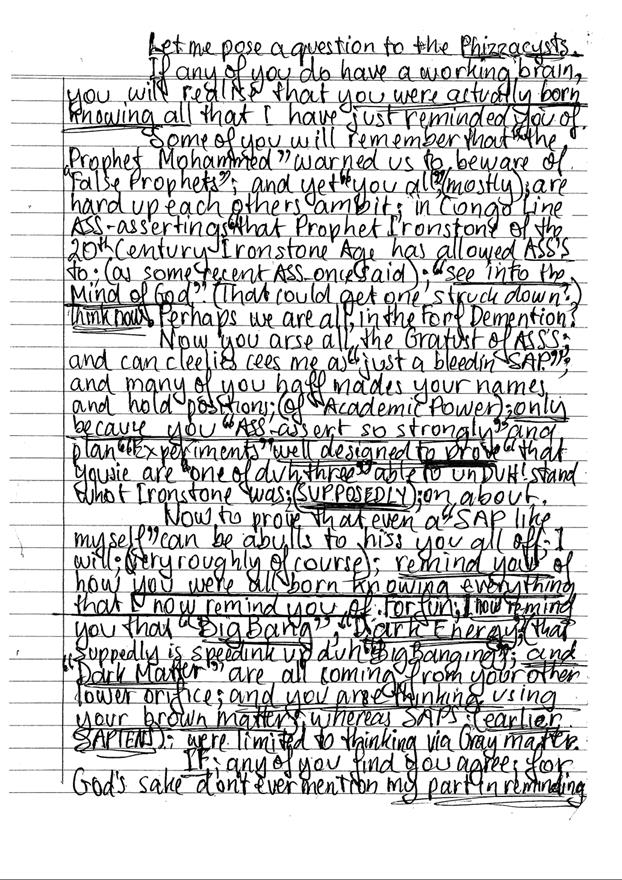 Let me pose a question to the Phizzacysts.
If any of you do have a working brain,
you will realise that you were actually born
knowing all that I have just reminded you of.
Some of you will remember that "the
Prophet Mohammed" warned us to beware of
"False Prophets"; and yet "you all" (mostly); are
hard up each others ambit; in Congo Line
ASS-assertings "that Prophet Ironstone of the
20th Century Ironstone Age has allowed ASS'S
to; (as some recent ASS once said); "see into the
Mind of God". (That could get one struck down?)
think now. Perhaps we are all, in the Fort Demention?
Now you arse all, the Gratust of ASS'S;
and can cleelie cees me as "just a bleedin SAP";
and many of you haff mades your names
and hold positions; (of Academic Power); only
because you "ASS-assert so strongly" and
plan "Experiments" well designed to prove "that
yousie are "one of duh three" able to unDUH! stand
what Ironstone was; (SUPPOSEDLY); on about.
Now to prove that even a "SAP like
myself" can be abulls to hiss you all off; I
will; (very roughly of course); remind you of
how you were all born knowing everything
that I now remind you of. For fun; I now remind
you that "Big Bang", "Dark Energy"; (that
suppedly is speedink up duh Big Bangings); and
"Dark Matter" are all coming from your other
lower orifice; and you are thinking using
your brown matter; whereas SAPS; (earlier
SAPIENS); were limited to thinking via Gray matter.
IF; any of you find you agree; for
God's sake don't ever mention my part in reminding